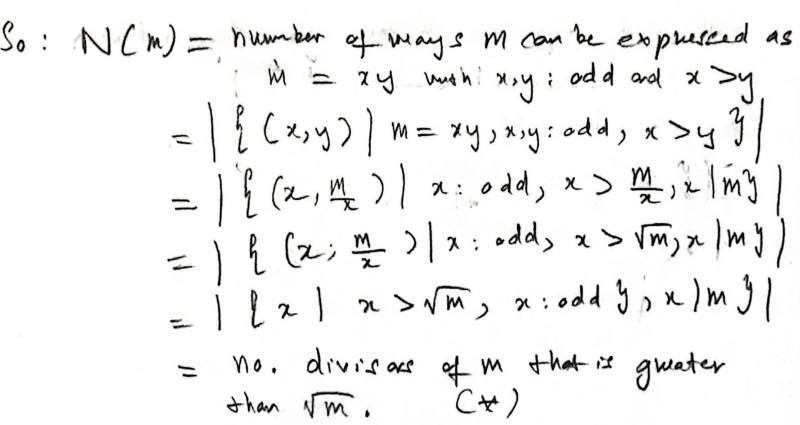 So : N(m) = number of ways m can be expressed as
m = xy with x,y : odd and x > y
= |{ (x,y) | m = xy, x,y : odd, x > y }|
= |{ (x, m/x) | x : odd, x > m/x, x | m }|
= |{ (x, m/x) | x : odd, x > √m, x | m }|
= |{ x | x > √m, x : odd }, x | m }|
= no. divisors of m that is greater
than √m. (*)